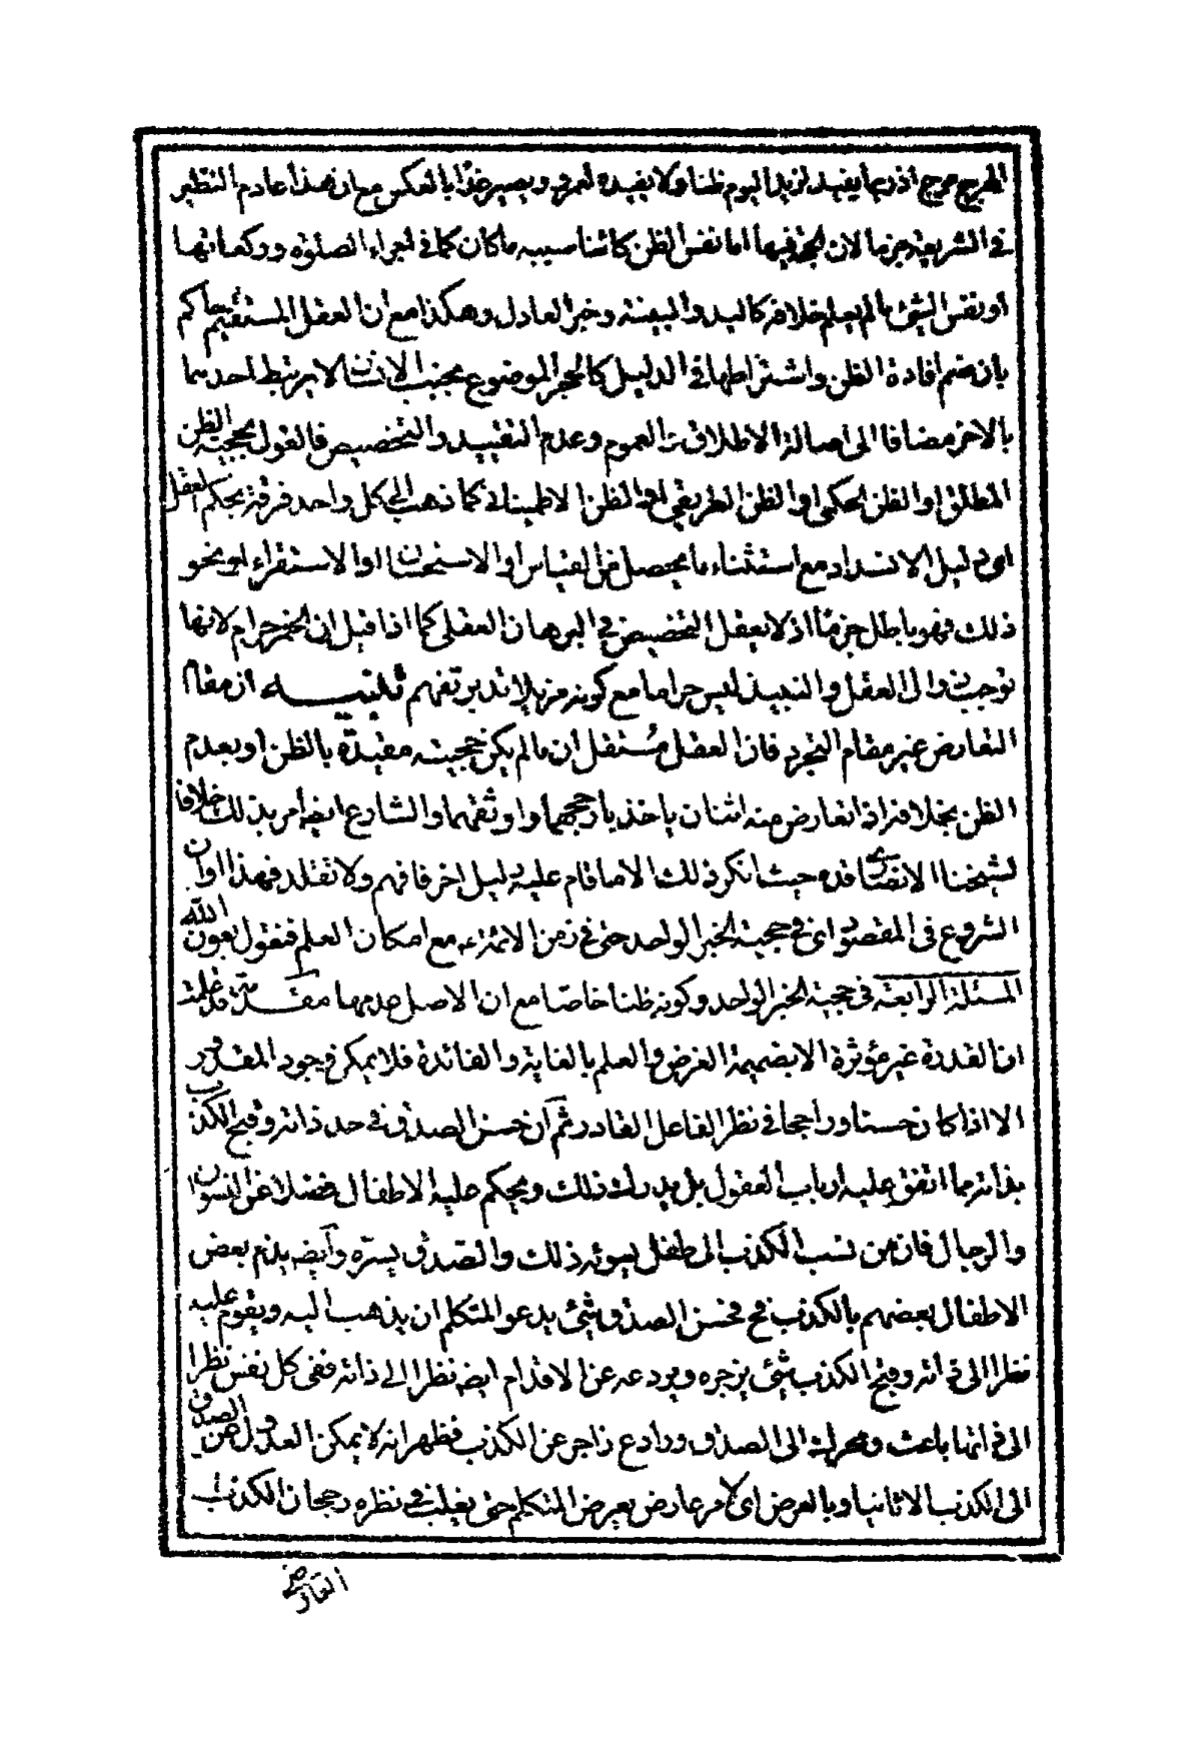 الهرج مرج اذ ربما يفيد لزيد اليوم ظنا ولا يفيده لعمرو ويصير غدا بالعكس مع ان هذا عادم النظير
في الشريعة جزما لان الحجة فيها اما نفس الظن كائنا سببه ما كان كما في اجزاء الصلوة وركعاتها
او نفس الشئ ما لم يعلم خلافه كاليد والبينة وخبر العادل وهكذا مع ان العقل المستقيم حاكم
بان ضم افادة الظن واشتراطها في الدليل كالحجر الموضوع بجنب الانسان لا يرتبط احدهما
بالاخر مضافا الى اصالة الاطلاق والعموم وعدم التقييد والتخصيص فالقول بحجية الظن
المطلق او الظن الحكمى او الظن الطريقي او الظن الاطمينانى كما ذهب الى كل واحد فرقة بحكم العقل
اى دليل الانسداد مع استثناء ما يحصل من القياس او الاستحسان او الاستقراء او نحو
ذلك فهو باطل جزمًا اذ لا يعقل التخصيص في البرهان العقلى كما اذا قيل ان الخمر حرام لانها
توجب زوال العقل والنبيذ ليس حراما مع كونه مزيلا تدبر تفهم تنبيه ان مقام
التعارض غير مقام التجرد فان العقل مستقل ان ما لم يكن حجيته مقيدة بالظن او بعدم
الظن بخلافه اذا تعارض منه اثنان ياخذ بارجحهما واوثقهما والشارع ايضا امر بذلك خلافا
لشيخنا الانصارى قده حيث انكر ذلك الا ما قام عليه دليل اخر فافهم ولا تقلد فهذا اوان
الشروع فى المقصود اى في حجية الخبر الواحد حتى في زمن الائمة ع مع امكان العلم فنقول بعون الله
المسئلة الرابعة في حجية الخبر الواحد وكونه ظنا خاصا مع ان الاصل عدمها مقدمة قد علمت
ان القدرة غير مؤثرة الا بضميمة الغرض والعلم بالغاية والفائدة فلا يمكن وجود المقدور
الا اذا كان حسنا وراجحا في نظر الفاعل القادر ثم ان حسن الصدق في حد ذاته وقبح الكذب
بذاته مما اتفق عليه ارباب العقول بل يدرك ذلك ويحكم عليه الاطفال فضلا عن النسوان
والرجال فان من نسب الكذب الى طفل يسوئه ذلك والصدق يسره وايضا يذم بعض
الاطفال بعضهم بالكذب فح فحسن الصدق شئ يدعو المتكلم ان يذهب اليه ويقوم عليه
نظرا الى ذاته وقبح الكذب شئ يزجره ويردعه عن الاقدام ايضا نظرا الى ذاته ففي كل نفس نظرا
الى ذاتها باعث ومحرك الى الصدق ورادع زاجر عن الكذب فظهر انه لا يمكن العدول عن الصدق
الى الكذب الا ثانيا وبالعرض اى لامر عارض يعرض المتكلم حتى يغلب في نظره رجحان الكذب